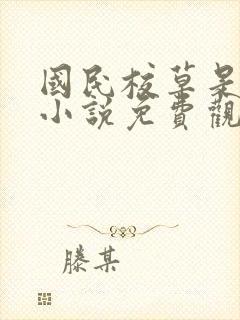 國民校草是
小說免費觀
滕某